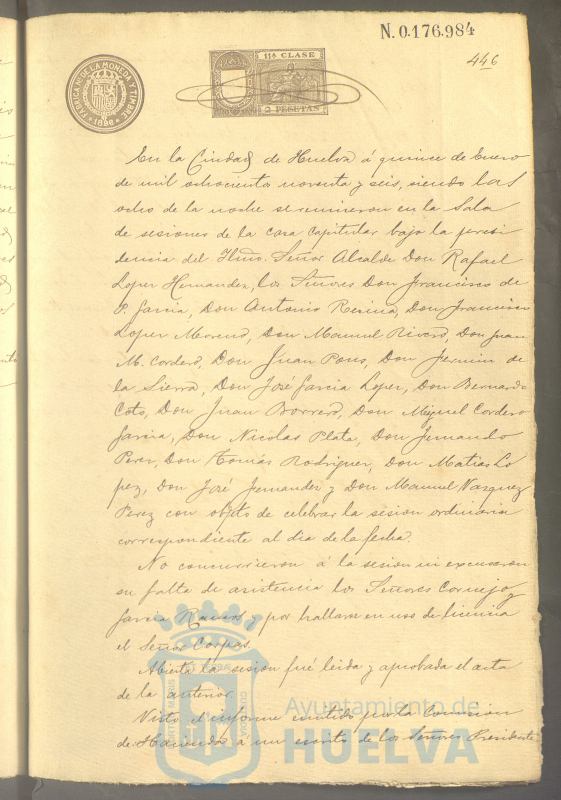 N. 0.176.984
446
FABRICA NL. DE LA MONEDA Y TIMBRE
1896
11ª CLASE
2 PESETAS
En la Ciudad de Huelva á quince de Enero
de mil ochocientos noventa y seis, siendo las
ocho de la noche se reunieron en la Sala
de sesiones de la casa capitular bajo la presi
dencia del Iltmo. Señor Alcalde Don Rafael
Lopez Hernandez, los Señores Don Francisco de
P. Garcia, Don Antonio Don Francisco
Lopez Moreno, Don Manuel Rivero, Don Juan
M. Cordero, Don Juan Pons, Don Fermin de
la Sierra, Don José Garcia Lopez, Don Bernardo
Coto, Don Juan Borrero, Don Miguel Cordero
Garcia, Don Nicolas Plata, Don Fernando
Perez, Don Tomás Rodriguez, Don Matias Lo
pez, Don José Fernandez y Don Manuel Vazquez
Perez con objeto de celebrar la sesion ordinaria
correspondiente al dia de la fecha.
No concurrieron á la sesion ni escusaron
su falta de asistencia los Señores Cornejo y
Garcia Ramos, y por hallarse en uso de licencia
el Señor Corpas.
Abierta la sesion fué leida y aprobada el acta
de la anterior.
Visto el informe emitido por la Comision
de Hacienda á un escrito de los Señores Presidente
Ayuntamiento de
HUELVA